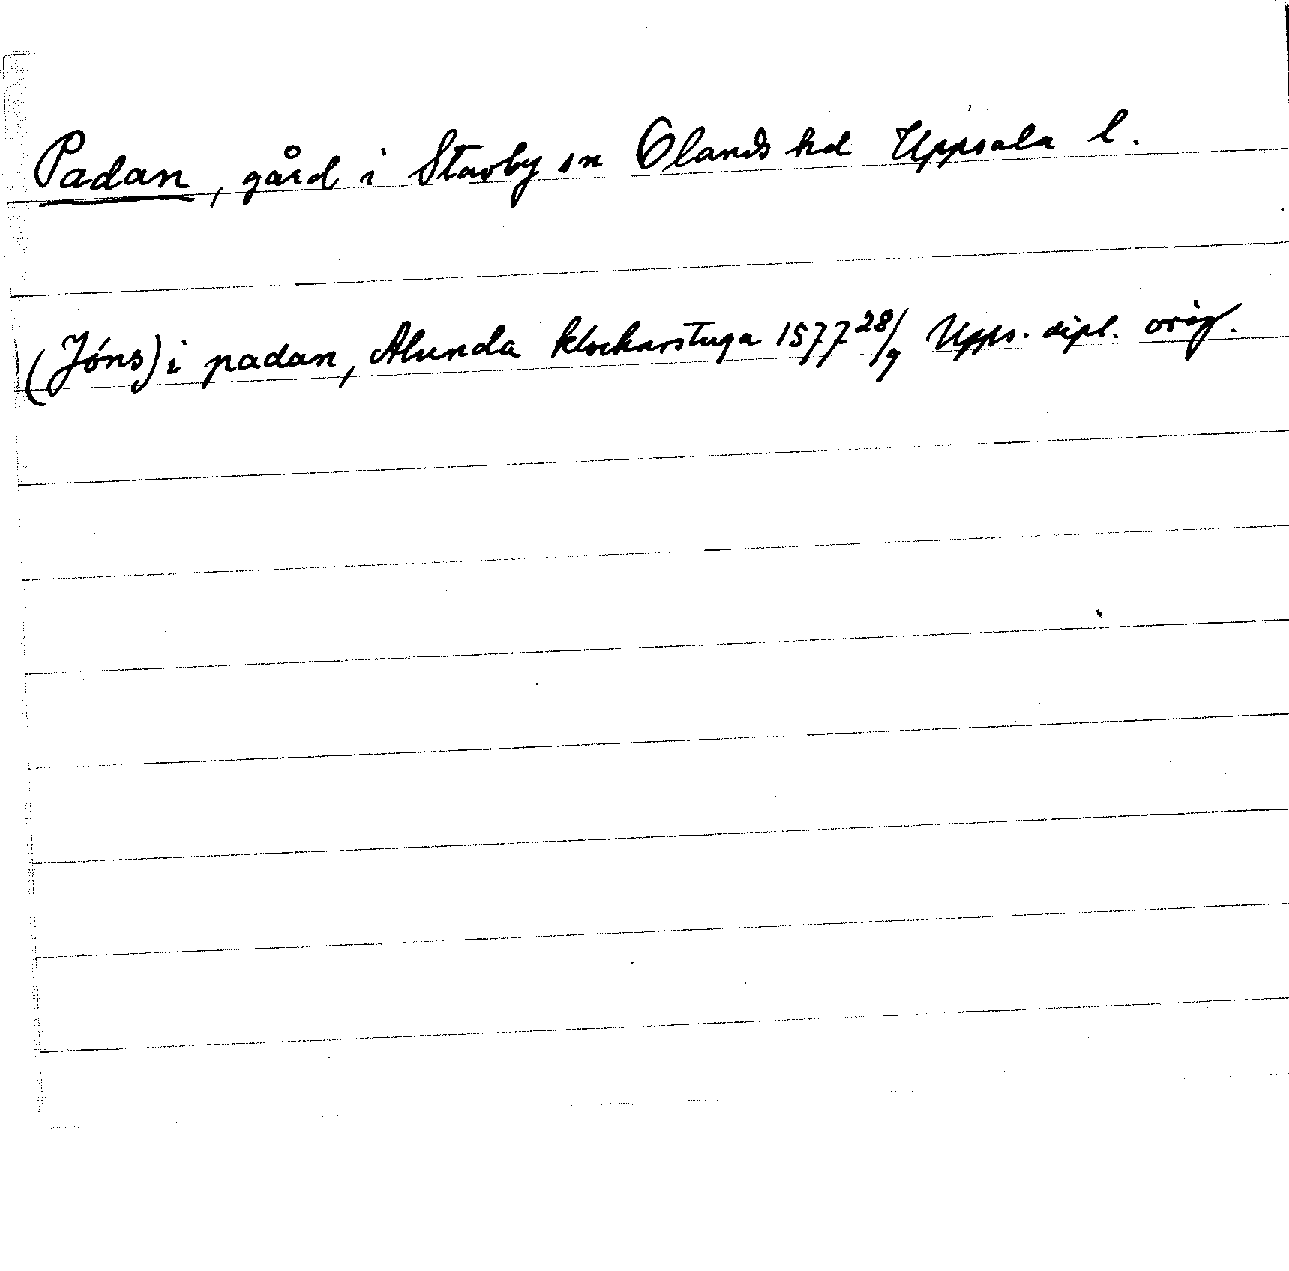 Padan, gård i Stavby sn Olands hd Uppsala l.
(Jóns) i padan, Alunda klockarstuga 1577 28/9 Upps. dipl. orig.